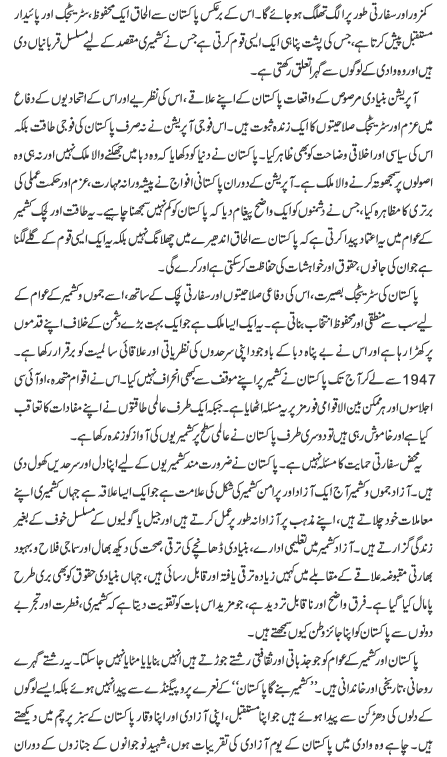 کمزور اور سفارتی طور پر الگ تھلگ ہو جائے گا۔ اس کے برعکس پاکستان سے الحاق ایک محفوظ، سٹریٹجک اور پائیدار
مستقبل پیش کرتا ہے، جس کی پشت پناہی ایک ایسی قوم کرتی ہے جس نے کشمیری مقصد کے لیے مسلسل قربانیاں دی
ہیں اور وہ وادی کے لوگوں سے گہرا تعلق رکھتی ہے۔
آپریشن بنیادی مرصوص کے واقعات پاکستان کے اپنے علاقے، اس کی نظریے اور اس کے اتحادیوں کے دفاع
میں عزم اور سٹریٹجک صلاحیتوں کا ایک زندہ ثبوت ہیں۔ اس فوجی آپریشن نے نہ صرف پاکستان کی فوجی طاقت بلکہ
اس کی سیاسی اور اخلاقی وضاحت کو بھی ظاہر کیا۔ پاکستان نے دنیا کو دکھایا کہ وہ دبا میں جھکنے والا ملک نہیں اور نہ ہی وہ
اصولوں پر سمجھوتہ کرنے والا ملک ہے۔ آپریشن کے دوران پاکستانی افواج نے پیشہ ورانہ مہارت، عزم اور حکمت عملی کی
برتری کا مظاہرہ کیا، جس نے دشمنوں کو ایک واضح پیغام دیا کہ پاکستان کو کم نہیں سمجھنا چاہیے۔ یہ طاقت اور لچک کشمیر
کے عوام میں یہ اعتماد پیدا کرتی ہے کہ پاکستان سے الحاق اندھیرے میں چھلانگ نہیں بلکہ یہ ایک ایسی قوم کے گلے لگنا
ہے جو ان کی جانوں، حقوق اور خواہشات کی حفاظت کر سکتی ہے اور کرے گی۔
پاکستان کی سٹریٹجک بصیرت، اس کی دفاعی صلاحیتوں اور سفارتی لچک کے ساتھ، اسے جموں و کشمیر کے عوام کے لیے
لیے سب سے منطقی اور محفوظ انتخاب بناتی ہے۔ یہ ایک ایسا ملک ہے جو ایک بہت بڑے دشمن کے خلاف اپنے قدموں
پر کھڑا رہا ہے اور اس نے بے پناہ دبا کے باوجود اپنی سرحدوں کی نظریاتی اور علاقائی سالمیت کو برقرار رکھا ہے۔
1947 سے لے کر آج تک پاکستان نے کشمیر پر اپنے موقف سے کبھی انحراف نہیں کیا۔ اس نے اقوام متحدہ، او آئی سی
اجلاسوں اور ہر ممکن بین الاقوامی فورمز پر یہ مسئلہ اٹھایا ہے۔ جبکہ ایک طرف عالمی طاقتوں نے اپنے مفادات کا تعاقب
کیا ہے اور خاموش رہی ہیں تو دوسری طرف پاکستان نے عالمی سطح پر کشمیریوں کی آواز کو زندہ رکھا ہے۔
یہ محض سفارتی حمایت کا مسئلہ نہیں ہے۔ پاکستان نے ضرورت مند کشمیریوں کے لیے اپنا دل اور سرحدیں کھول دی
ہیں۔ آزاد جموں و کشمیر آج ایک آزاد اور پرامن کشمیر کی شکل کی علامت ہے جو ایک ایسا علاقہ ہے جہاں کشمیری اپنے
معاملات خود چلاتے ہیں، اپنے مذہب پر آزادانہ طور پر عمل کرتے ہیں اور جیل یا گولیوں کے مسلسل خوف کے بغیر
زندگی گزارتے ہیں۔ آزاد کشمیر میں تعلیمی ادارے، بنیادی ڈھانچے کی ترقی، صحت کی دیکھ بھال اور سماجی فلاح و بہبود
بھارتی مقبوضہ علاقے کے مقابلے میں کہیں زیادہ ترقی یافتہ اور قابل رسائی ہیں، جہاں بنیادی حقوق کو بھی بری طرح
پامال کیا گیا ہے۔ فرق واضح اور ناقابل تردید ہے، جو مزید اس بات کو تقویت دیتا ہے کہ کشمیری، فطرت اور تجربے
دونوں سے پاکستان کو اپنا جائز وطن کیوں سمجھتے ہیں۔
پاکستان اور کشمیر کے عوام کو جو جذباتی اور ثقافتی رشتے جوڑتے ہیں انہیں بنایا یا مٹایا نہیں جا سکتا۔ یہ رشتے گہرے
روحانی، تاریخی اور خاندانی ہیں۔ "کشمیر بنے گا پاکستان" کے نعرے پروپیگنڈے سے پیدا نہیں ہوئے بلکہ ایسے لوگوں
کے دلوں کی دھڑکن سے پیدا ہوئے ہیں جو اپنا مستقبل، اپنی آزادی اور اپنا وقار پاکستان کے سبز پرچم میں دیکھتے
ہیں۔ چاہے وہ وادی میں پاکستان کے یوم آزادی کی تقریبات ہوں، شہید نوجوانوں کے جنازوں کے دوران